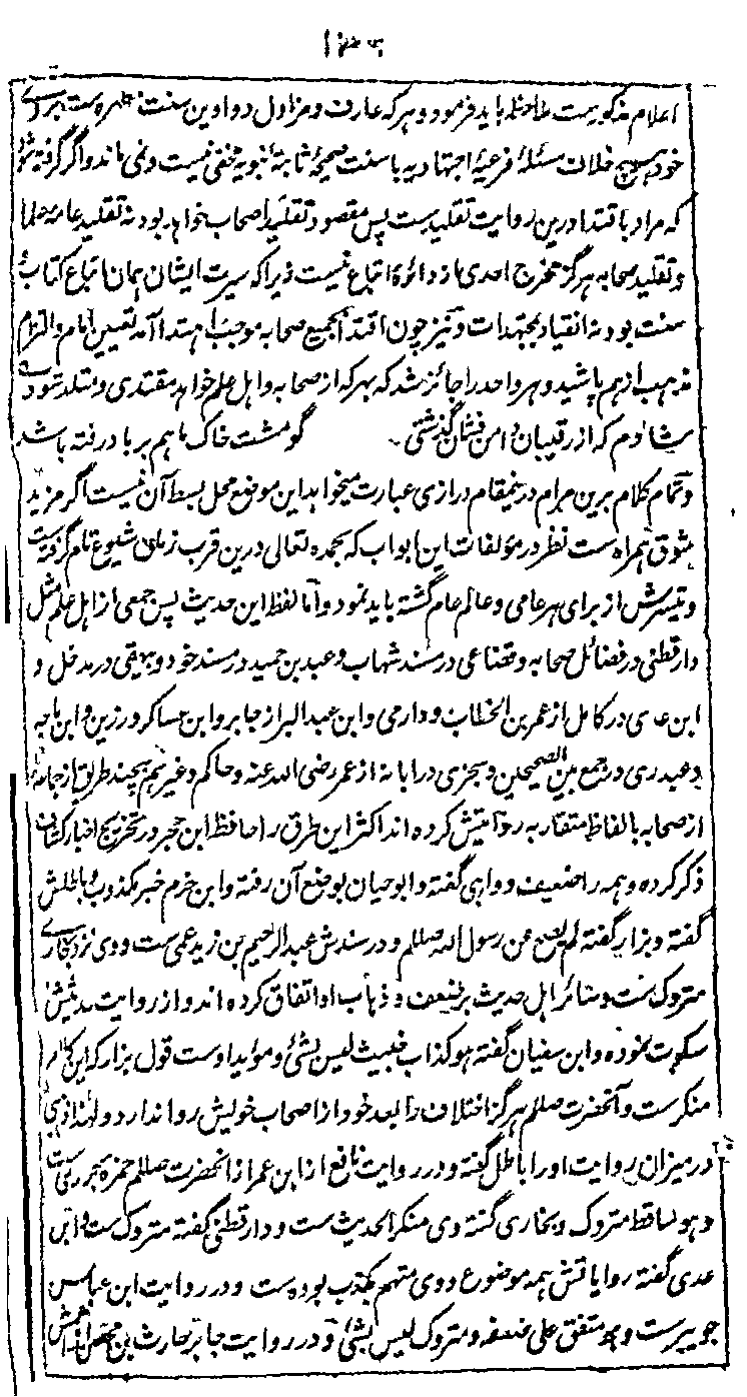 ۱۳۶
اعلام مذکورست ملاحظه باید فرمود و هر که عارف و مزاول دواوین سنت مطهره ست بروے
خود هیچ خلاف مسئلهٔ فرعیهٔ اجتهادیه با سنت صحیحهٔ ثابتهٔ نبویه مخفی نیست و نمی ماند و اگر گرفته شود
که مراد باقتدا درین روایت تقلیدست پس مقصود تقلید اصحاب خواهد بود نه تقلید عامه علما
و تقلید صحابه هرگز مخرج احدی از دائرهٔ اتباع نیست زیرا که سیرت ایشان همان اتباع کتاب و
سنت بود نه انقیاد مجتهدات و نیز چون اقتدا بجمیع صحابه موجب اهتدا آمد تعیین امام و التزام
مذهب از هم پاشید و هر واحد را جائز شد که بهر که از صحابه و اهل علم خواهد مقتدی و مقلد شود ے
شادم که از رقیبان دامن فشان گذشتی گو مشت خاک ما هم بر باد رفته باشد
و تمام کلام برین مرام درینمقام درازی عبارت میخواهد این موضع محل بسط آن نیست اگر مزید
شوق همراه ست نظر در مؤلفات این ابواب که بحمده تعالی درین قرب زمان شیوع تام گرفته ست
و تیسرش از برای هر عامی و عالم عام گشته باید نمود و اما لفظ این حدیث پس جمعی از اهل علم مثل
دارقطنی در فضائل صحابه و قضاعی در مسند شهاب و عبد بن حمید در مسند خود و بیهقی در مدخل و
ابن عدی در کامل از عمر بن الخطاب و دارمی و ابن عبد البر از جابر و ابن عساکر و رزین و ابن ماجه
و عبدری در جمع بین الصحیحین و سجزی در ابانه از عمر رضی الله عنه و حاکم و غیرهم بچند طرق از جماعهٔ
از صحابه بالفاظ متقاربه روایتش کرده اند اکثر این طرق را حافظ ابن حجر در تخریج اخبار کشاف
ذکر کرده و همه را ضعیف و واهی گفته و ابو حیان بوضع آن رفته و ابن حزم خبر مکذوب و باطلش
گفته و بزار گفته لم یصح عن رسول الله صللم و در سندش عبد الرحیم بن زید عمی ست و وی نزد بخارے
متروک ست و سائر اهل حدیث بر ضعف و ذهاب او اتفاق کرده اند و از روایت حدیثش
سکوت نموده و ابن سفیان گفته هو کذاب خبیث لیس بشئ و مؤید اوست قول بزار که این کلام
منکر ست و آنحضرت صللم هرگز اختلاف را بعد خود از اصحاب خویش روا ندارد و لهذا ذهبی
در میزان روایت او را باطل گفته و در روایت نافع از ابن عمر از آنحضرت صللم حمزه جزری ست
و هو ساقط متروک و بخاری گفته وی منکر الحدیث ست و دارقطنی گفته متروک ست و ابن
عدی گفته روایاتش همه موضوع و وی متهم بکذب بوده ست و در روایت ابن عباس
جویبر ست و هو متفق علی ضعفه و متروک لیس بشئ و در روایت جابر حارث بن